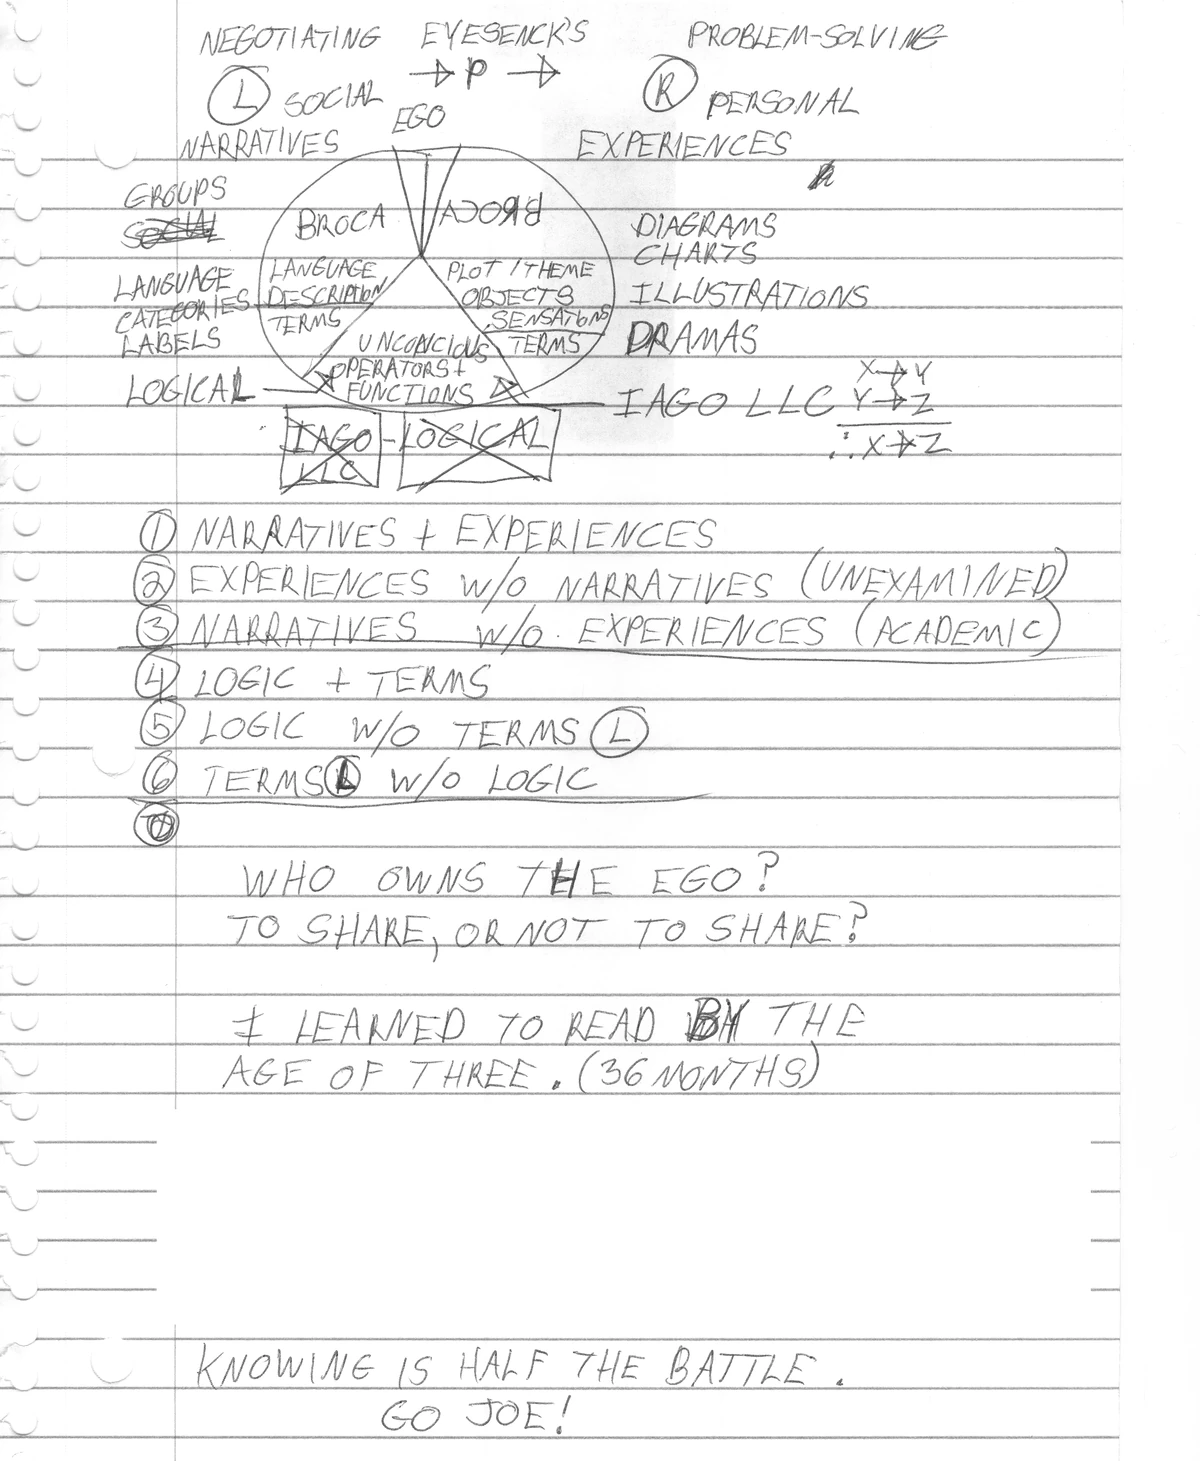 NEGOTIATING EYESENCK'S PROBLEM-SOLVING
Ⓛ SOCIAL → P → Ⓡ PERSONAL
EGO
NARRATIVES EXPERIENCES
GROUPS
SOCIAL
BROCA BROCA
DIAGRAMS
CHARTS
LANGUAGE
CATEGORIES
LABELS
LANGUAGE
DESCRIPTION
TERMS
PLOT / THEME
OBJECTS
SENSATIONS
TERMS
ILLUSTRATIONS
DRAMAS
UNCONCIOUS
OPERATORS +
FUNCTIONS
LOGICAL
IAGO LLC
X → Y
Y → Z
∴ X → Z
IAGO - LOGICAL
LLC
① NARRATIVES + EXPERIENCES
② EXPERIENCES W/O NARRATIVES (UNEXAMINED)
③ NARRATIVES W/O EXPERIENCES (ACADEMIC)
④ LOGIC + TERMS
⑤ LOGIC W/O TERMS Ⓛ
⑥ TERMS Ⓛ W/O LOGIC
WHO OWNS THE EGO?
TO SHARE, OR NOT TO SHARE?
I LEARNED TO READ BY THE
AGE OF THREE. (36 MONTHS)
KNOWING IS HALF THE BATTLE.
GO JOE!